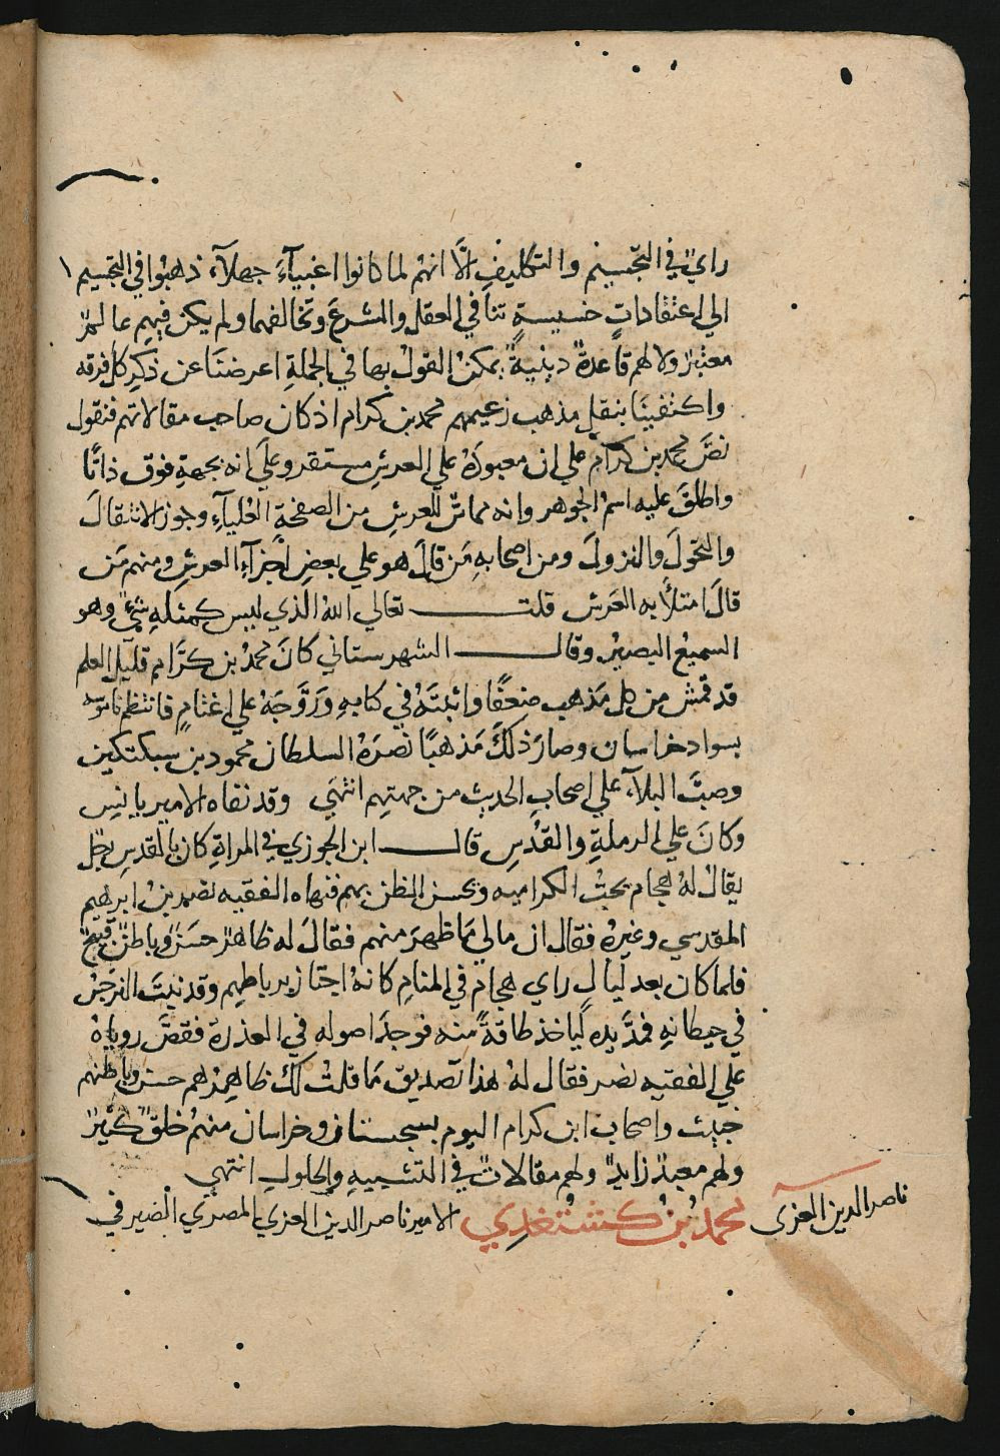 راي في التجسيم والتكليف الا انهم لما كانوا اغبياء جهلاء ذهبوا في التجسيم
الي اعتقادات خسيسة تنافي العقل والشرع وتخالفهما ولم يكن فيهم عالم
معتبر ولا لهم قاعدة دينية يمكن القول بها في الجملة اعرضنا عن ذكر كل فرقه
واكتفينا بنقل مذهب زعيمهم محمد بن كرام اذ كان صاحب مقالاتهم فنقول
نص محمد بن كرام علي ان معبوده علي العرش مستقر وعلي انه بجهة فوق ذاتا
واطلق عليه اسم الجوهر وانه مماس للعرش من الصفحة العلياء وجوز الانتقال
والتحول والنزول ومن اصحابه من قال هو علي بعض اجزاء العرش ومنهم من
قال امتلأ به العرش قلت تعالي الله الذي ليس كمثله شيء وهو
السميع البصير وقال الشهرستاني كان محمد بن كرام قليل العلم
قد قمش من كل مذهب ضغثا واثبته في كتابه وروجه علي اغتام فانتظم ناموسه
بسواد خراسان وصار ذلك مذهبا نصره السلطان محمود بن سبكتكين
وصب البلاء علي اصحاب الحديث من جهتهم انتهي وقد نفاه الامير يانس
وكان علي الرملة والقدس قال ابن الجوزي في المراة كان بالقدس رجل
يقال له هجام يحب الكراميه ويحسن الظن بهم فنهاه الفقيه نصر بن ابرهيم
المقدسي وغيره فقال ان مالي ما ظهر منهم فقال له ظاهر حسن وباطن قبيح
فلما كان بعد ليال راي هجام في المنام كانه اجتاز برباطهم وقد نبت النرجس
في حيطانه فمد يده لياخذ طاقة منه فوجد اصوله في العذرة فقص روياه
علي الفقيه نصر فقال له هذا تصديق ما قلت لك ظاهرهم حسن وباطنهم
خبيث واصحاب ابن كرام اليوم بسجستان وخراسان منهم خلق كثير
ولهم معبد زايد ولهم مقالات في التشبيه والحلول انتهي
ناصر الدين العزي محمد بن كشتغدي الامير ناصر الدين العزي المصري الصيرفي